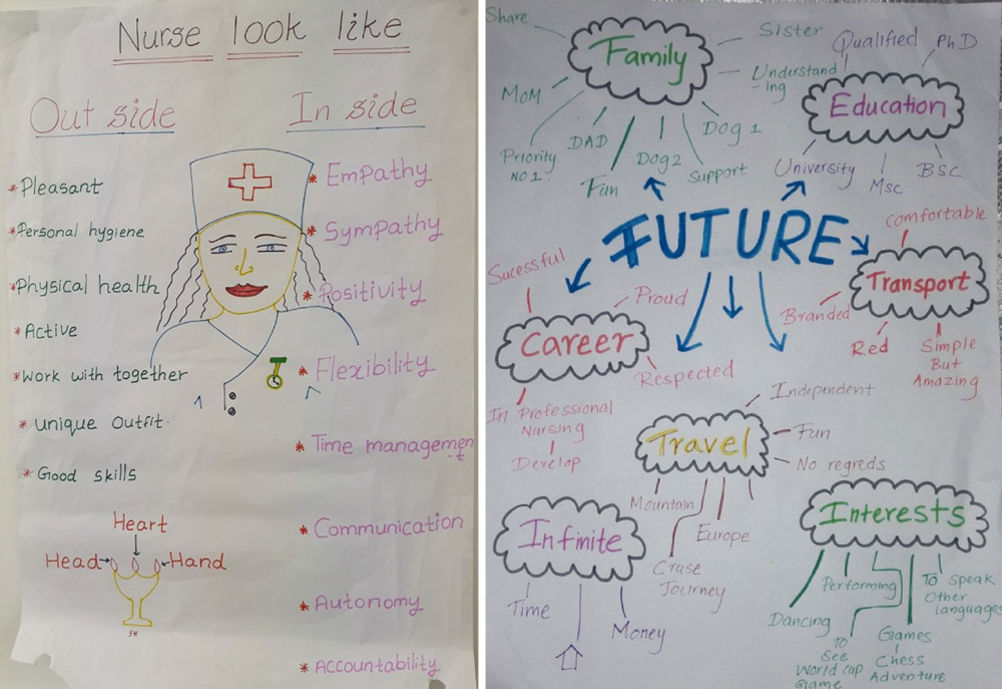 Nurse look like
Out side
In side
*Pleasant
*Personal hygiene
*Physical health
*Active
*Work with together
*Unique Outfit.
*Good skills
*Empathy
*Sympathy
*Positivity
*Flexibility
*Time managemen
-t
*Communication
*Autonomy
*Accountability
Heart
Head
Hand
38
Share
Family
Sister
Understand
-ing
MOM
Priority
NO 1
DAD
Fun
Dog2
Support
Dog 1
Qualified
PhD
Education
University
Msc
BSC
FUTURE
comfortable
Transport
Branded
Red
Simple
But
Amazing
Sucessful
Proud
Career
Respected
In Professional
Nursing
Develop
Independent
Travel
Fun
No regreds
Mountain
Cruse
Journey
Europe
Infinite
Time
Money
Interests
Dancing
Performing
To
See
World cup
Game
Games
Chess
Adventure
To Speak
Other
languages